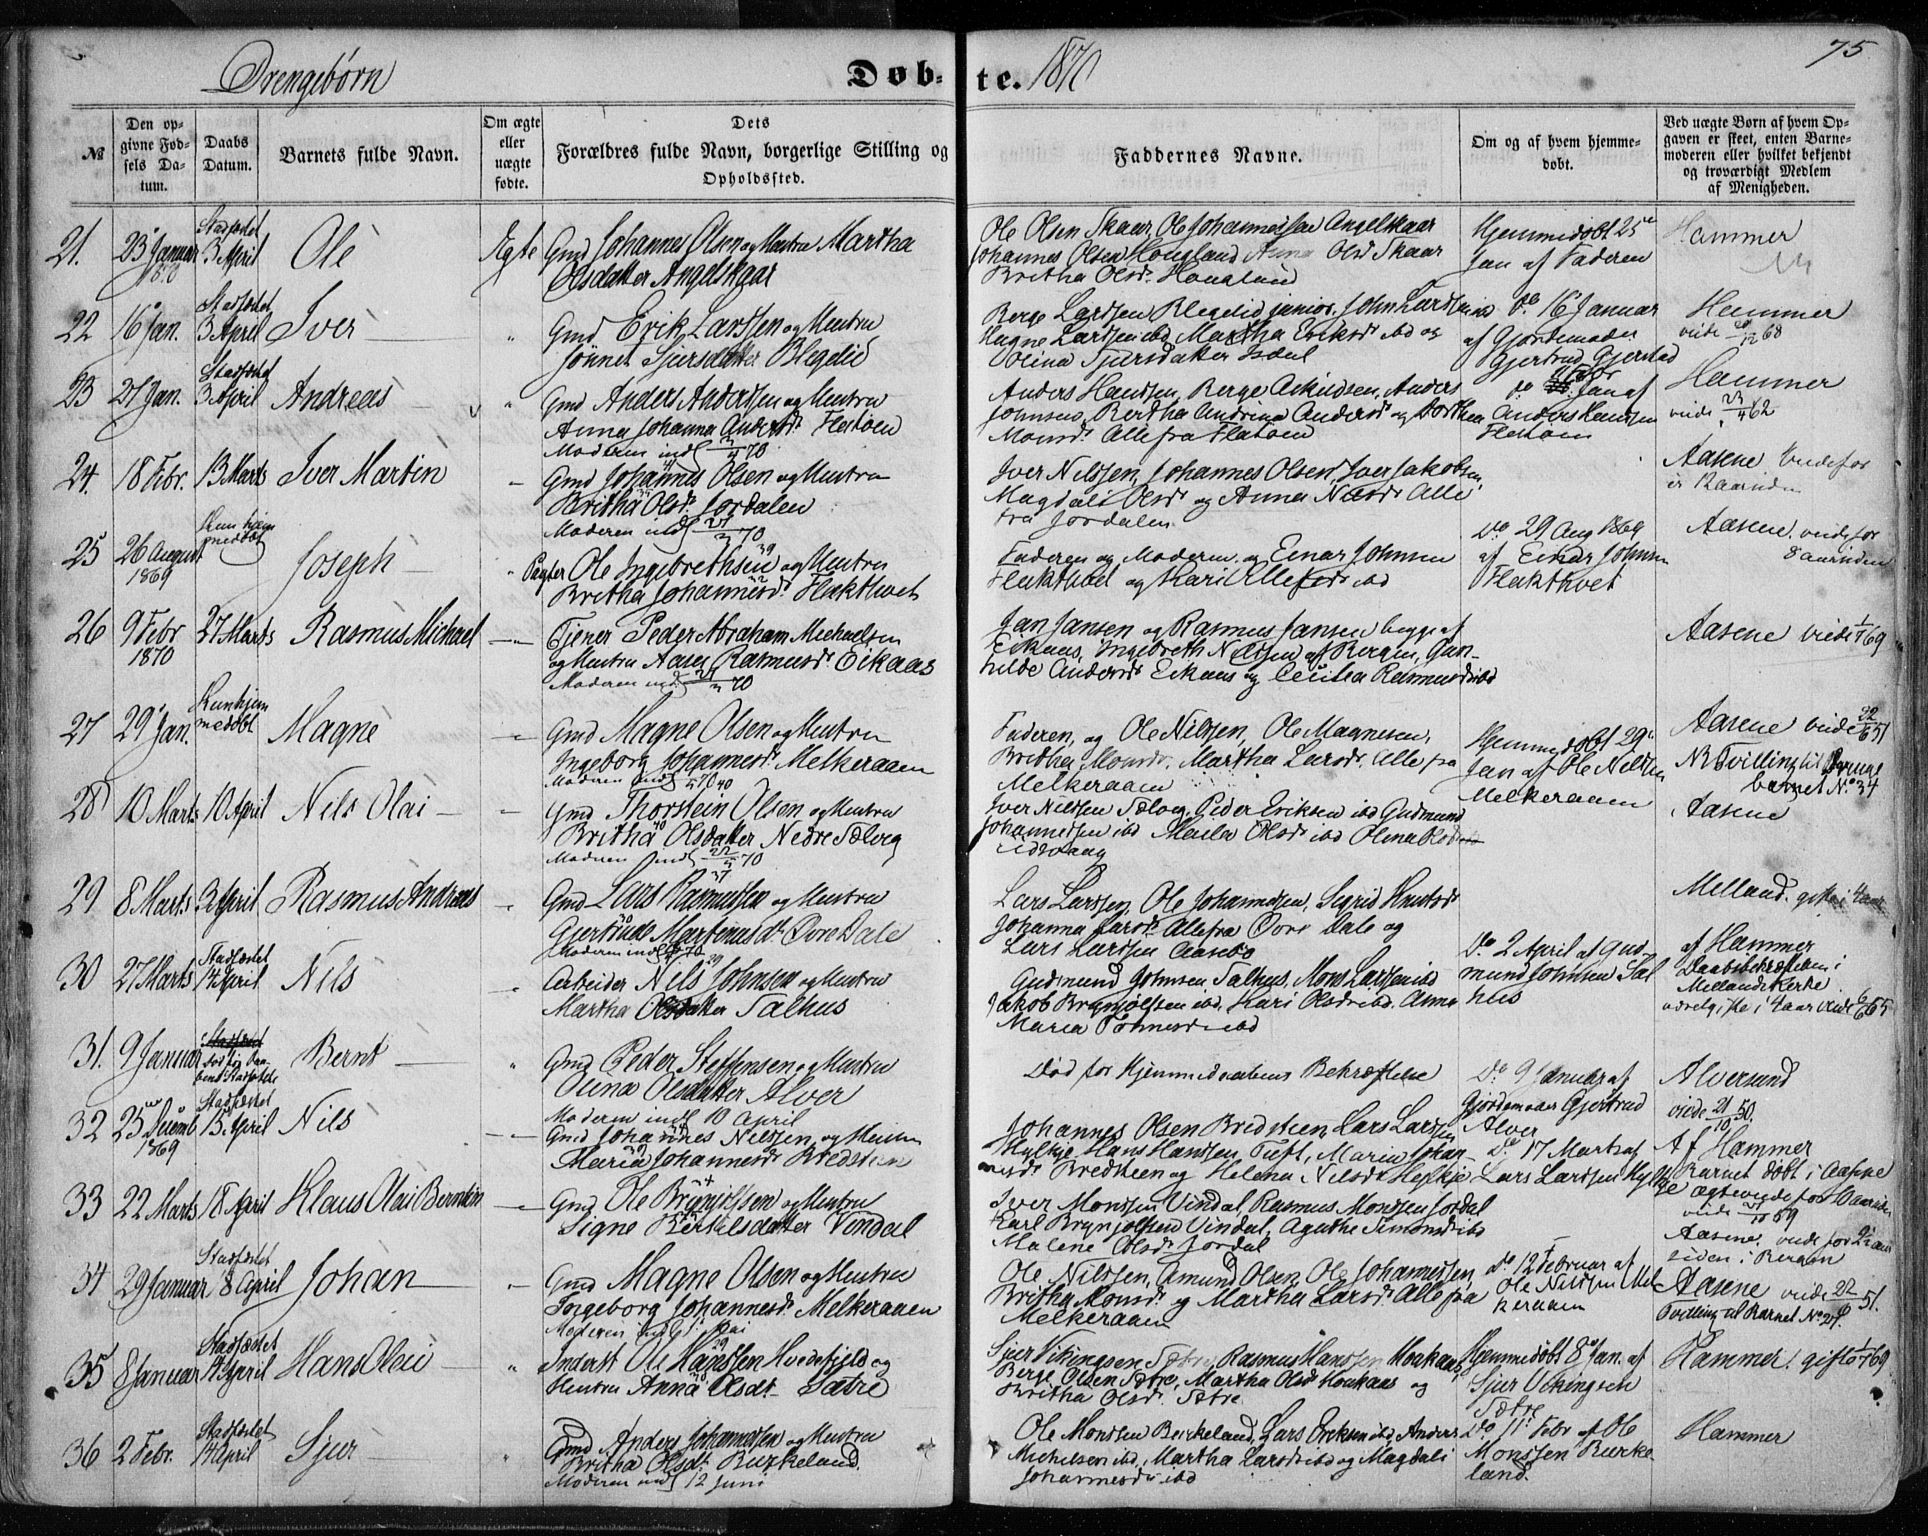 Drengebørn
Døbte. 1870
75
№
Den opgivne Fødsels Datum.
Daabs Datum.
Barnets fulde Navn.
Om ægte eller uægte fødte.
Dets Forældres fulde Navn, borgerlige Stilling og Opholdssted.
Faddernes Navne.
Om og af hvem hjemmedøbt.
Ved uægte Børn af hvem Opgaven er skeet, enten Barnemoderen eller hvilket bekjendt og troværdigt Medlem af Menigheden.
21. 23 Januar 1870 Stadfæstet 3 April Ole Ægte Gmd Johannes Olsen og Hustru Martha
Olsdatter Angelskaar
Ole Olsen Skaar, Ole Johannessen Angelskaar
Johannes Olsen Hougland Anna Olsd Skaar
Britha Olsd. Hougland
Hjemmedøbt 25
Jan af Faderen
Hammer
22 16 Jan. Stadfæstet 3 April Iver " Gmd Erik Larssen og Hustru
Jønnet Sjursdatter Blegelid
Berge Larssen Blegelid junior, John Larssen ibid
Magne Larssen ibd Martha Eriksd. ibd og
Olina Sjursdatter
Do. 16 Januar
af Gjordemoder
Gjertrud Gjerstad
Hammer
viede 68
23 21 Jan. Stadfæstet 3 April Andreas " Gmd Anders Anderssen og Hustru
Anna Johanna Andersd. Fletøen
Moderen indl 70
Anders Hanssen, Berge Askndsen, Anders
Johnsen, Bertha Andrina Andersd og Dorthea
Monsd. Alle fra Flatøen
do Jan af
Anders Hanssen
Fletøen
Hammer
viede 23/4 62
24. 18 Febr. 13 Marts Iver Martin Gmd Johannes Olsen og Hustru
Britha Olsd. Jordalen
Moderen indl 70
Iver Nilssen, Johannes Olsen, Iver Jakobsen,
Magdali Olsd og Anna Nilsd Alle
fra Jordalen
Aasene viede for
25 26 August 1869 Kun hjemmedøbt Joseph " Pagter Ole Ingebrethsen og Hustru
Britha Johannesd. Flukthvet
Faderen og Moderen og Einar Johnsen
og Kari ibd
Do 29 Aug 1869
af Einar Johnsen
Flekthvet
Aasene. viede for
8 aar siden
26 9 Febr 1870 27 Marts Rasmus Michael Tjener Peder Abraham Michaelsen
og Hustru Aase Rasmusd. Eikaas
Moderen indl. 70
Jan Jansen og Rasmus Jansen begge af
Eikaas, Ingebreth Nilssen af Bergen, Gunhilde Andersd Eikaas og Cecilia Rasmusd ibd
Aasene viede 69
27 29 Jan. Kun hjemmedøbt Magne Gmd Magne Olsen og Hustru
Ingeborg Johannesd. Melkeraaen
Faderen, og Ole Nilssen, Ole Magnesen,
Britha Monsd. Martha Larsd. Alle fra
Melkeraaen
Hjemmedøbt 29
Jan af Ole Nilssen
Melkeraaen
Aasene viede 22/6 51
NB Tvilling til Drengebarnet No 34
28 10 Marts 10 April Nils Olai Gmd Thorstein Olsen og Hustru
Britha Olsdatter Nedre Tælvig
Moderen indl 70
Iver Nilssen Tælvig, Peder Eriksen ibd Gudmund
Johannessen ibd Olsd ibd Olena
Aasene
29 8 Marts 3 April Rasmus Andreas Gmd Lars Rasmussen og Hustru
Gjertrude Martinusd. Øvre Dale
Lars Larssen, Ole Johannessen, Sigrid Knutsd
Johanna Larsd. Alle fra Øvre Dale og
Lars Larssen Aasebø
Melland. gifte i 4 aar
30 27 Marts Stadfæstet 14 April Nils Arbeider Nils Johnsen og Hustru
Martha Olsdatter Salhus
Gudmund Johnsen Salhus, Mons Larssen ibd
Jakob Brynjolfsen ibd, Kari Olsd ibd. Anna
Maria Tormosd ibd
Do 2 April af Gudmund Johnsen Salhus
af Hammer
Daabsbekræftelsen i
Mellands Kirke
31. 9 Januar Bernt " Gmd Peder Steffensen og Hustru
Olina Olsdatter Alver
Moderen indl 10 April
Død for Hjemmedaabens Bekræftelse
Do 9 Januar af
Gjordemoder Gjertrud
Alver
Alversund
viede 21/10 50.
32 25 Decemb 1869 Stadfæstet 15 April Nils Gmd Johannes Nilssen, og Hustru
Maria Johannesd. Bredsteen
Johannes Olsen Bredsteen, Lars Larssen
Hylkje Hans Hanssen Tuft, Maria Johannesd. Bredsteen og Helena Nilsd. Hylkje
Do 17 Marts af
Lars Larssen Hylkje
Af Hammer
Barnet døbt i Aasene
33 22 Marts 18 April Klaus Olai Berntin Gmd Ole Brynjolfsen og Hustru
Signe Bertelsdatter Vindal
Iver Monssen Vindal, Rasmus Monssen Jordal
Karl Brynjolfsen Vindal, Agathe Simonsd ibd
Malene Olsd. Jordal
Aasene. viede for 2½ aar
siden i Bergen
34 29 Januar Stadfæstet 18 April Johan " Gmd Magne Olsen og Hustru
Ingeborg Johannesd. Melkeraaen
Moderen indl 1. Mai
Ole Nilssen, Amund Olsen, Ole Johannessen,
Britha Monsd. og Martha Larsd. Alle fra
Melkeraaen
do 12 Februar af
Ole Nilssen Melkeraaen
Aasene viede 22/6 51.
Tvilling til Barnet No 27.
35 8 Januar Stadfæstet 14 April Hans Olai " Inderst Ole Hanssen Hvedefjeld og
Hustru Anna Olsdt. Sætre
Sjur Vikingsen Sætre, Rasmus Hanssen Monkaas,
Berge Olsen Sætre, Martha Olsd Monkaas og
Britha Olsd. Sætre
Hjemmedøbt 8 Jan. af
Sjur Vikingsen
Sætre
Hammer, gifte 69
36 2 Febr. Stadfæstet 14 April Sjur " Gmd Anders Johannessen og Hustru
Britha Olsdt. Birkeland.
Moderen indl 12 Juni
Ole Monssen Birkeland, Lars Eriksen ibd, Anders
Michelsen ibd, Martha Larsd ibd og Magdali
Johannesd. ibd
Do 11 Febr af Ole
Monssen Birkeland.
Hammer